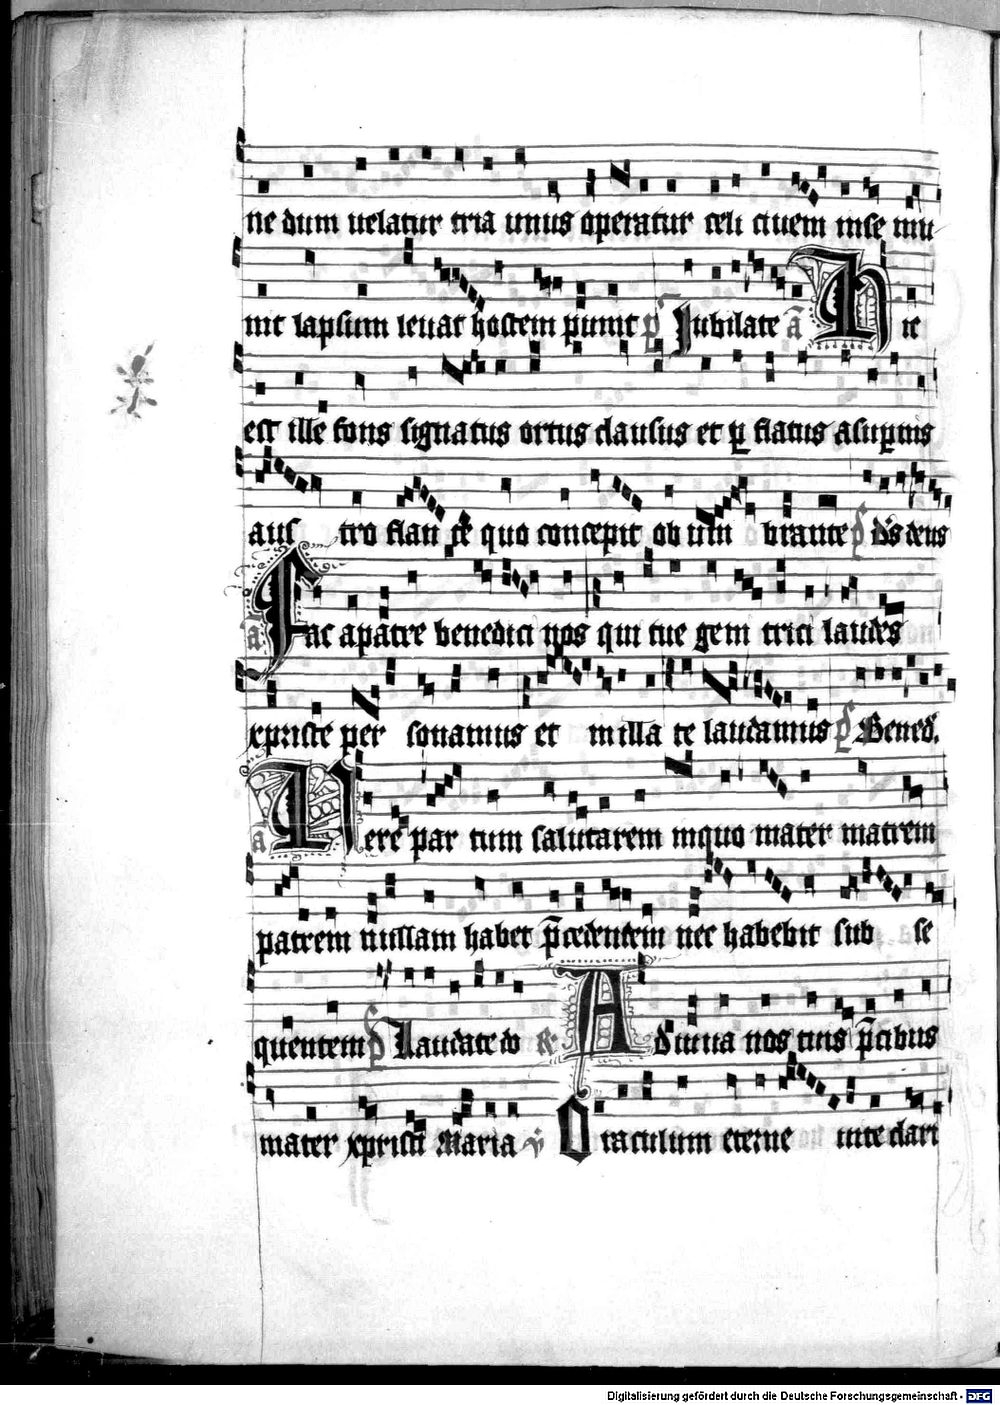 ne dum uelatur tria unus operatur celi ciuem in se mu
nit lapsum leuat hostem punit p̄ Jubilate a᷎ Hic
est ille fons signatus ortus clausus et ꝑ flatus a suꝑnis
aus tro flan te quo concepit ob um brante ps d̄s deus
a᷎ Fac a patre benedici nos qui tue gem trici laudes
xpriste per sonamus et in illa te laudamus ps Bened.
a᷎ Vere par tum salutarem in quo mater matrem
patrem nullam habet p̄cedentem nec habebit sub se
quentem ps Laudate do R Adiuua nos tuis p̄cibus
mater xpristi Maria v̄ Oraculum eterne uite dari
Digitalisierung gefördert durch die Deutsche Forschungsgemeinschaft - DFG